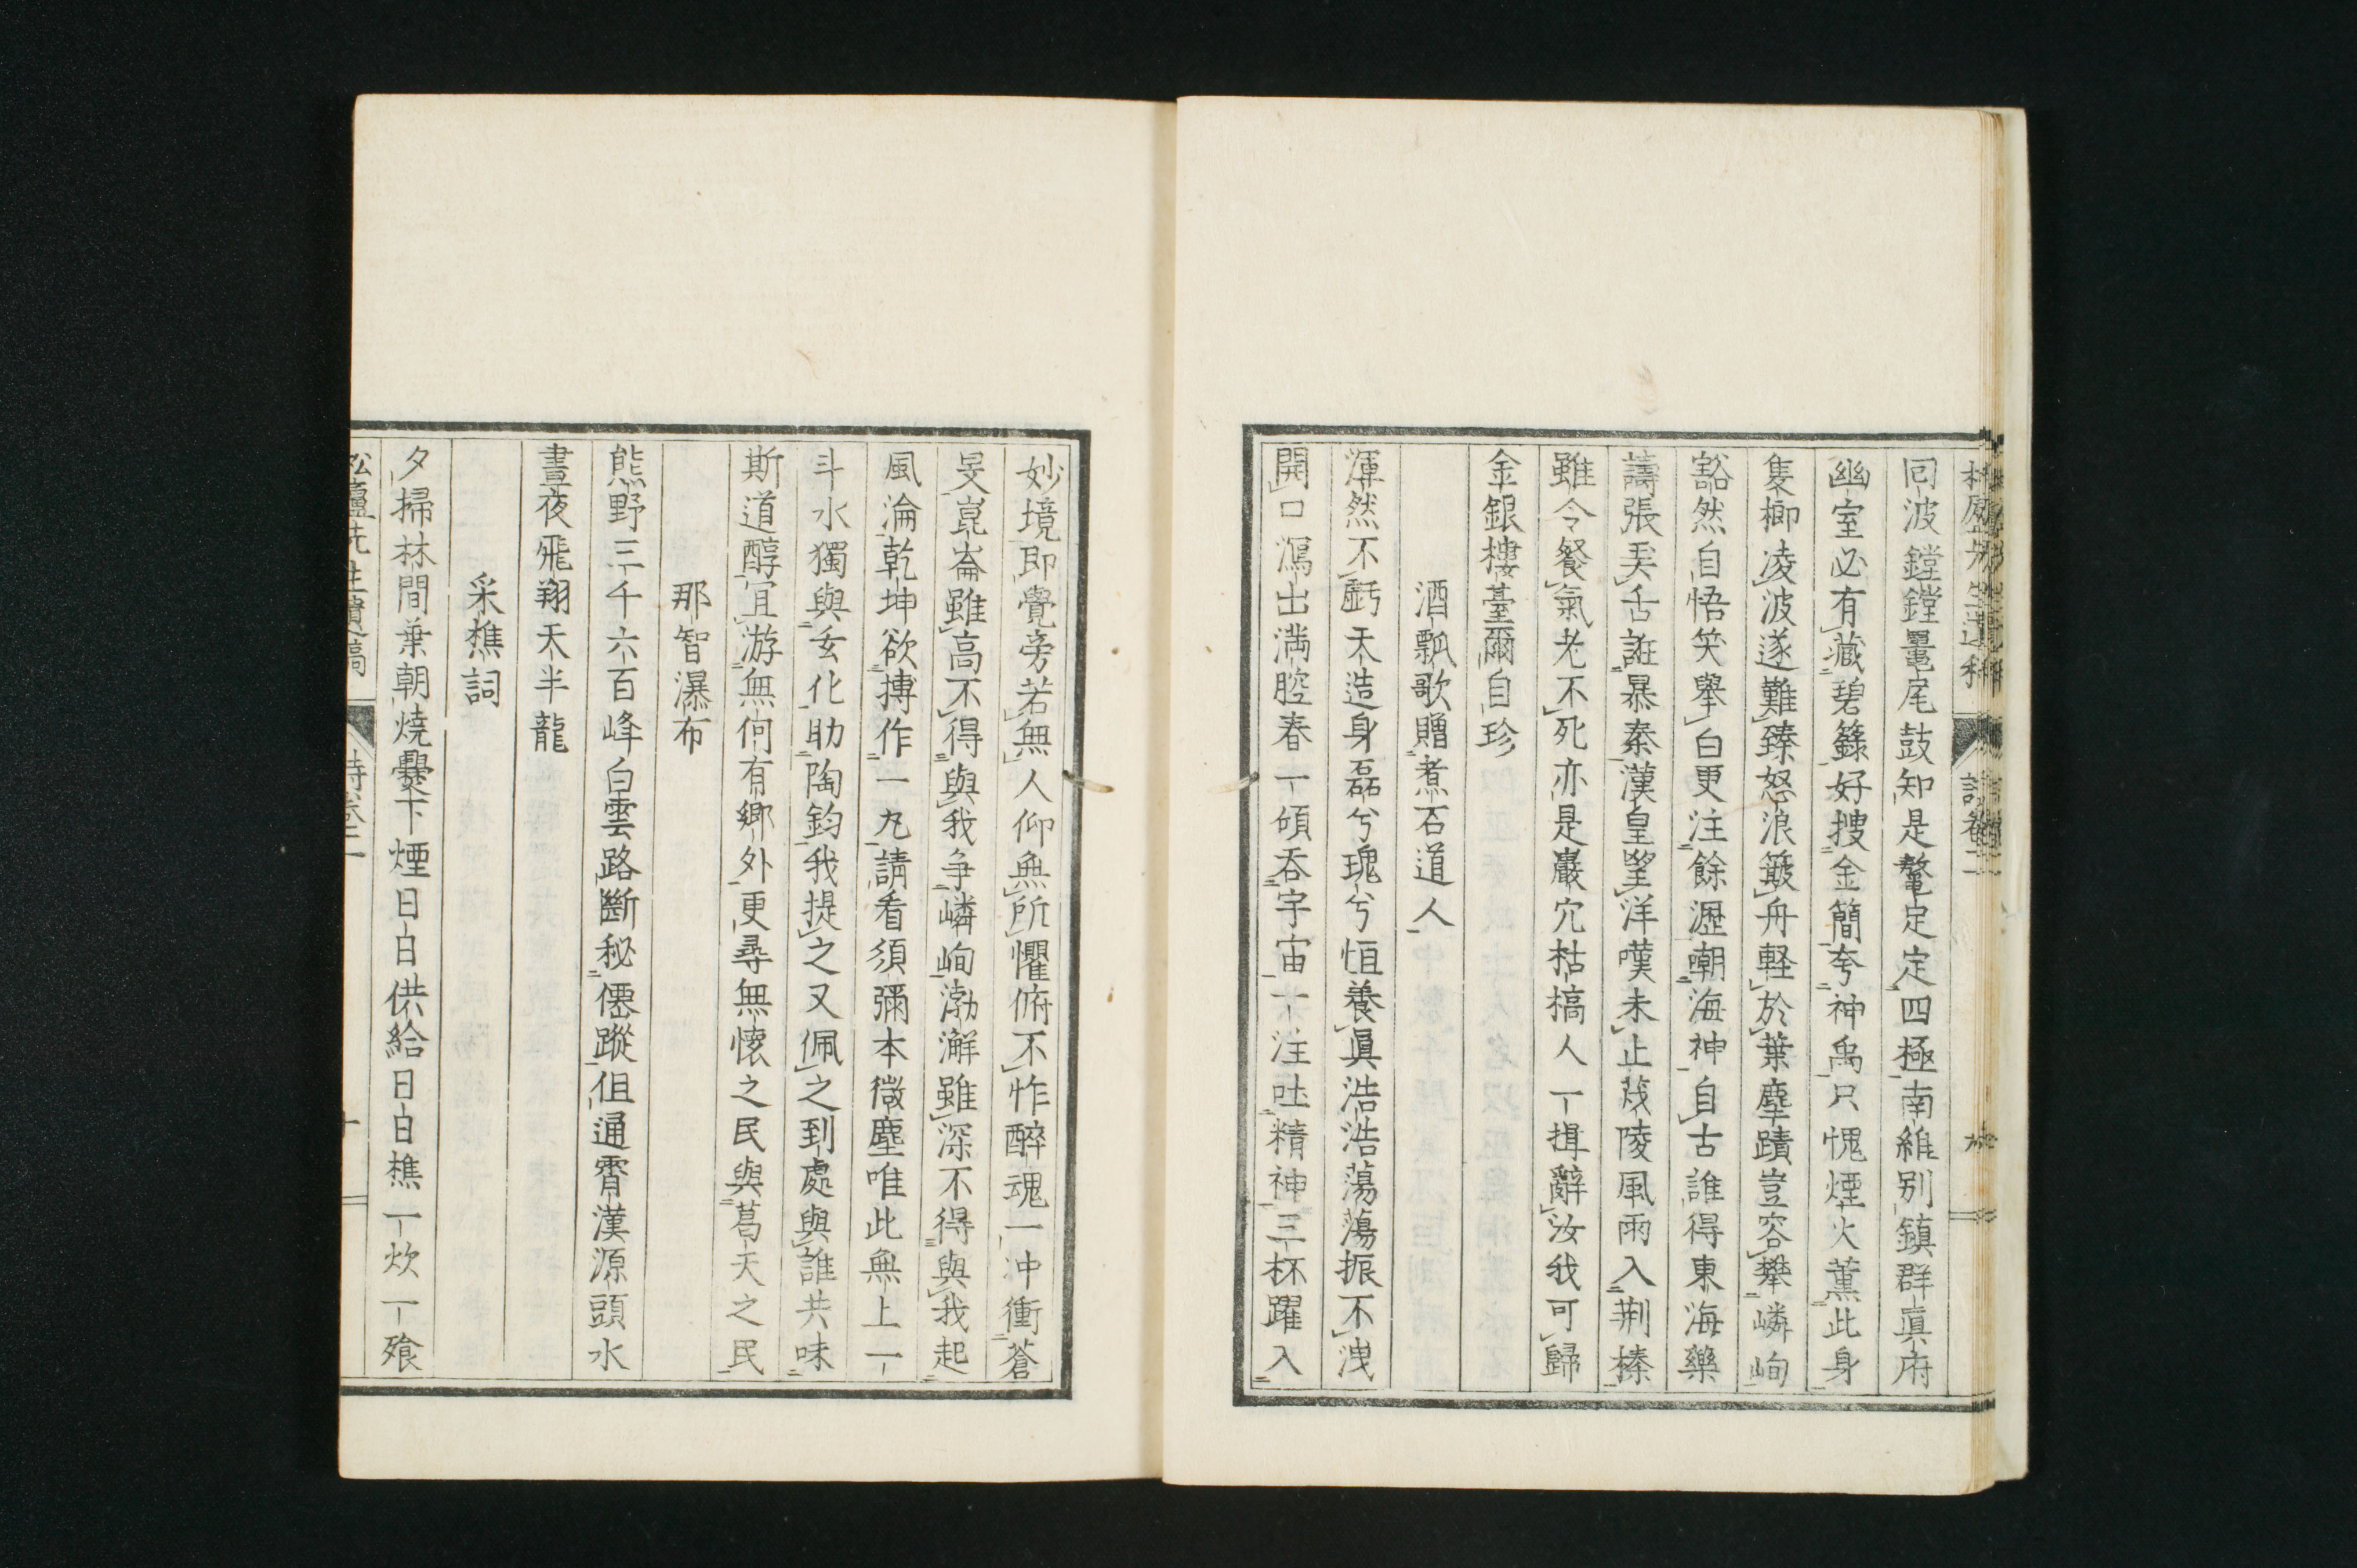 詩卷二
回波鏜鏜鼉尾鼓知是鼇定定四極南維別鎮群眞府
幽室必有藏碧籙好搜金簡夸神禹只愧煙火薰此身
隻栁凌波遂難臻怒浪簸舟軽於葉塵蹟豈容攀嶙峋
豁然自悟笑擧白更注餘瀝嘲海神自古誰得東海藥
譸張奚舌誑暴秦漢皇望洋嘆未止茂陵風雨入荆榛
雖令餐氣老不死亦是巖穴枯槁人一揖辭汝我可歸
金銀樓臺爾自珍
酒瓢歌贈煮石道人
渾然不虧天造身磊兮瑰兮恒養眞浩浩蕩蕩振不洩
開口瀉出満腔春一傾呑宇宙一注吐精神三杯躍入
妙境即覺旁若無人仰無所懼俯不怍醉魂一冲衝蒼
旻崑崙雖高不得與我争嶙峋渤澥雖深不得與我起
風淪乾坤欲摶作一丸請看須彌本微塵唯此無上一
斗水獨與玄化助陶鈞我提之又佩之到處與誰共味
斯道醇冝游無何有鄉外更尋無懷之民與葛天之民
那智瀑布
熊野三千六百峰白雲路斷秘僊蹤伹通霄漢源頭水
晝夜飛翔天半龍
采樵詞
夕掃林間葉朝燒爨下煙日日供給日日樵一炊一飱
松廬先生遺稿 詩卷二 十